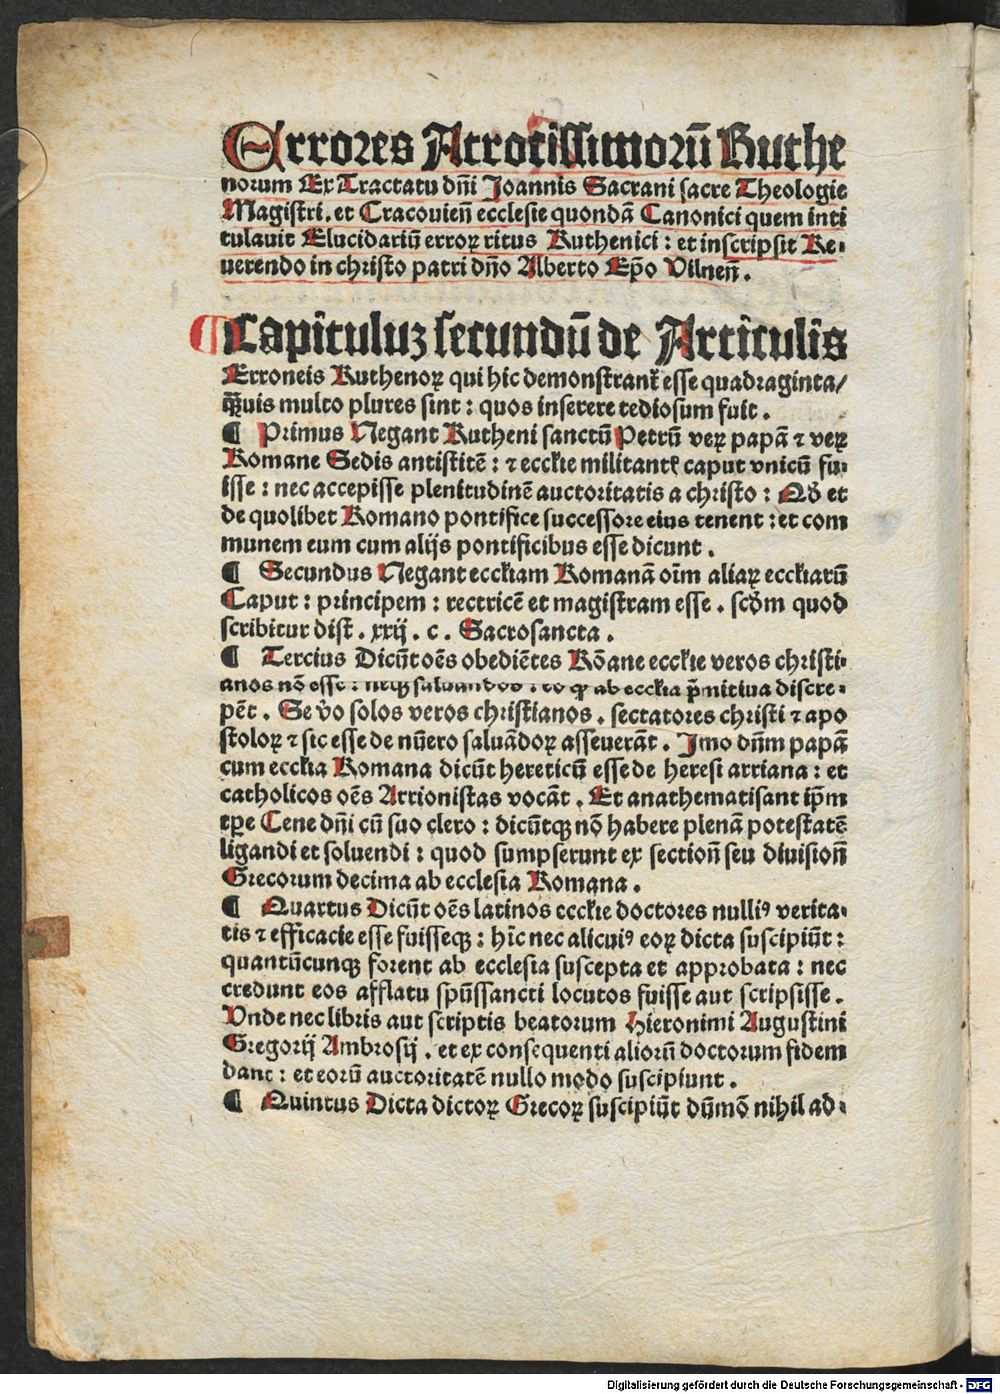 Errores Atrocissimorū Ruthe
norum Ex Tractatu dn̄i Joannis Sacrani sacre Theologie
Magistri. et Cracouien̄ ecclesie quondā Canonici quem inti
tulauit Elucidariū erroꝝ ritus Ruthenici: et inscripsit Re-
uerendo in christo patri dn̄o Alberto Ep̄o Vilnen̄.
¶ Capituluꝫ secundū de Articulis
Erroneis Ruthenoꝝ qui hic demonstrant᷑ esse quadraginta/
q̄uis multo plures sint: quos inserere tediosum fuit.
¶ Primus Negant Rutheni sanctū Petrū veꝝ papā ⁊ veꝝ
Romane Sedis antistitē: ⁊ eccłie militant᷑ caput vnicū fu-
isse: nec accepisse plenitudinē auctoritatis a christo: Qđ et
de quolibet Romano pontifice successore eius tenent: et com
munem eum cum alijs pontificibus esse dicunt.
¶ Secundus Negant eccłiam Romanā oīm aliaꝝ eccłiarū
Caput: principem: rectricē et magistram esse. scđm quod
scribitur dist. xxij. c. Sacrosancta.
¶ Tercius Dicūt oēs obediētes Rōane eccłie veros christi-
anos nō esse: neqꝫ saluandos: eo ꝙ ab eccłia p̄mitiua discre-
pēt. Se v̄o solos veros christianos. sectatores christi ⁊ apo
stoloꝝ ⁊ sic esse de nūero saluādoꝝ asseuerāt. Jmo dn̄m papā
cum eccłia Romana dicūt hereticū esse de heresi arriana: et
catholicos oēs Arrionistas vocāt. Et anathematisant ip̄m
tꝑe Cene dn̄i cū suo clero: dicūtqꝫ nō habere plenā potestatē
ligandi et soluendi: quod sumpserunt ex section̄ seu diuision̄
Grecorum decima ab ecclesia Romana.
¶ Quartus Dicūt oēs latinos eccłie doctores nulliꝰ verita-
tis ⁊ efficacie esse fuisseqꝫ: hīc nec alicuiꝰ eoꝝ dicta suscipiūt:
quantūcunqꝫ forent ab ecclesia suscepta et approbata: nec
credunt eos afflatu spūssancti locutos fuisse aut scripsisse.
Vnde nec libris aut scriptis beatorum Hieronimi Augustini
Gregorij Ambrosij. et ex consequenti aliorū doctorum fidem
dant: et eorū auctoritatē nullo modo suscipiunt.
¶ Quintus Dicta dictoꝝ Grecoꝝ suscipiūt dūmō nihil ad-
Digitalisierung gefördert durch die Deutsche Forschungsgemeinschaft - DFG